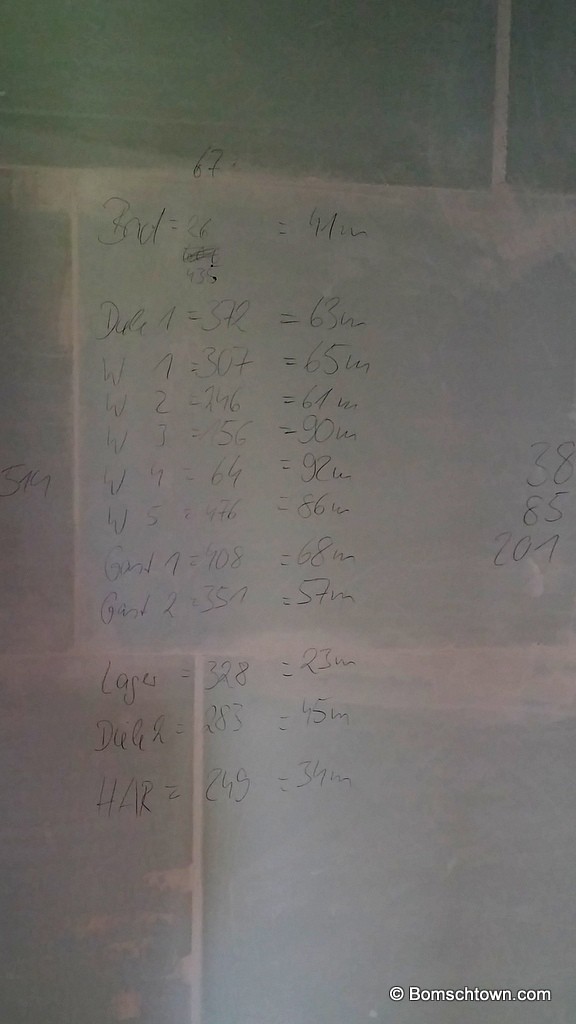 67
Bad = 26 = 41m
435
Diele 1 = 372 = 63m
W 1 = 307 = 65m
W 2 = 246 = 61m
W 3 = 156 = 90m
W 4 = 64 = 92m
W 5 = 476 = 86m
Gast 1 = 408 = 68m
Gast 2 = 351 = 57m
Lager = 328 = 23m
Diele 2 = 283 = 45m
HAR = 249 = 34m
514
38
85
201
© Bomschtown.com